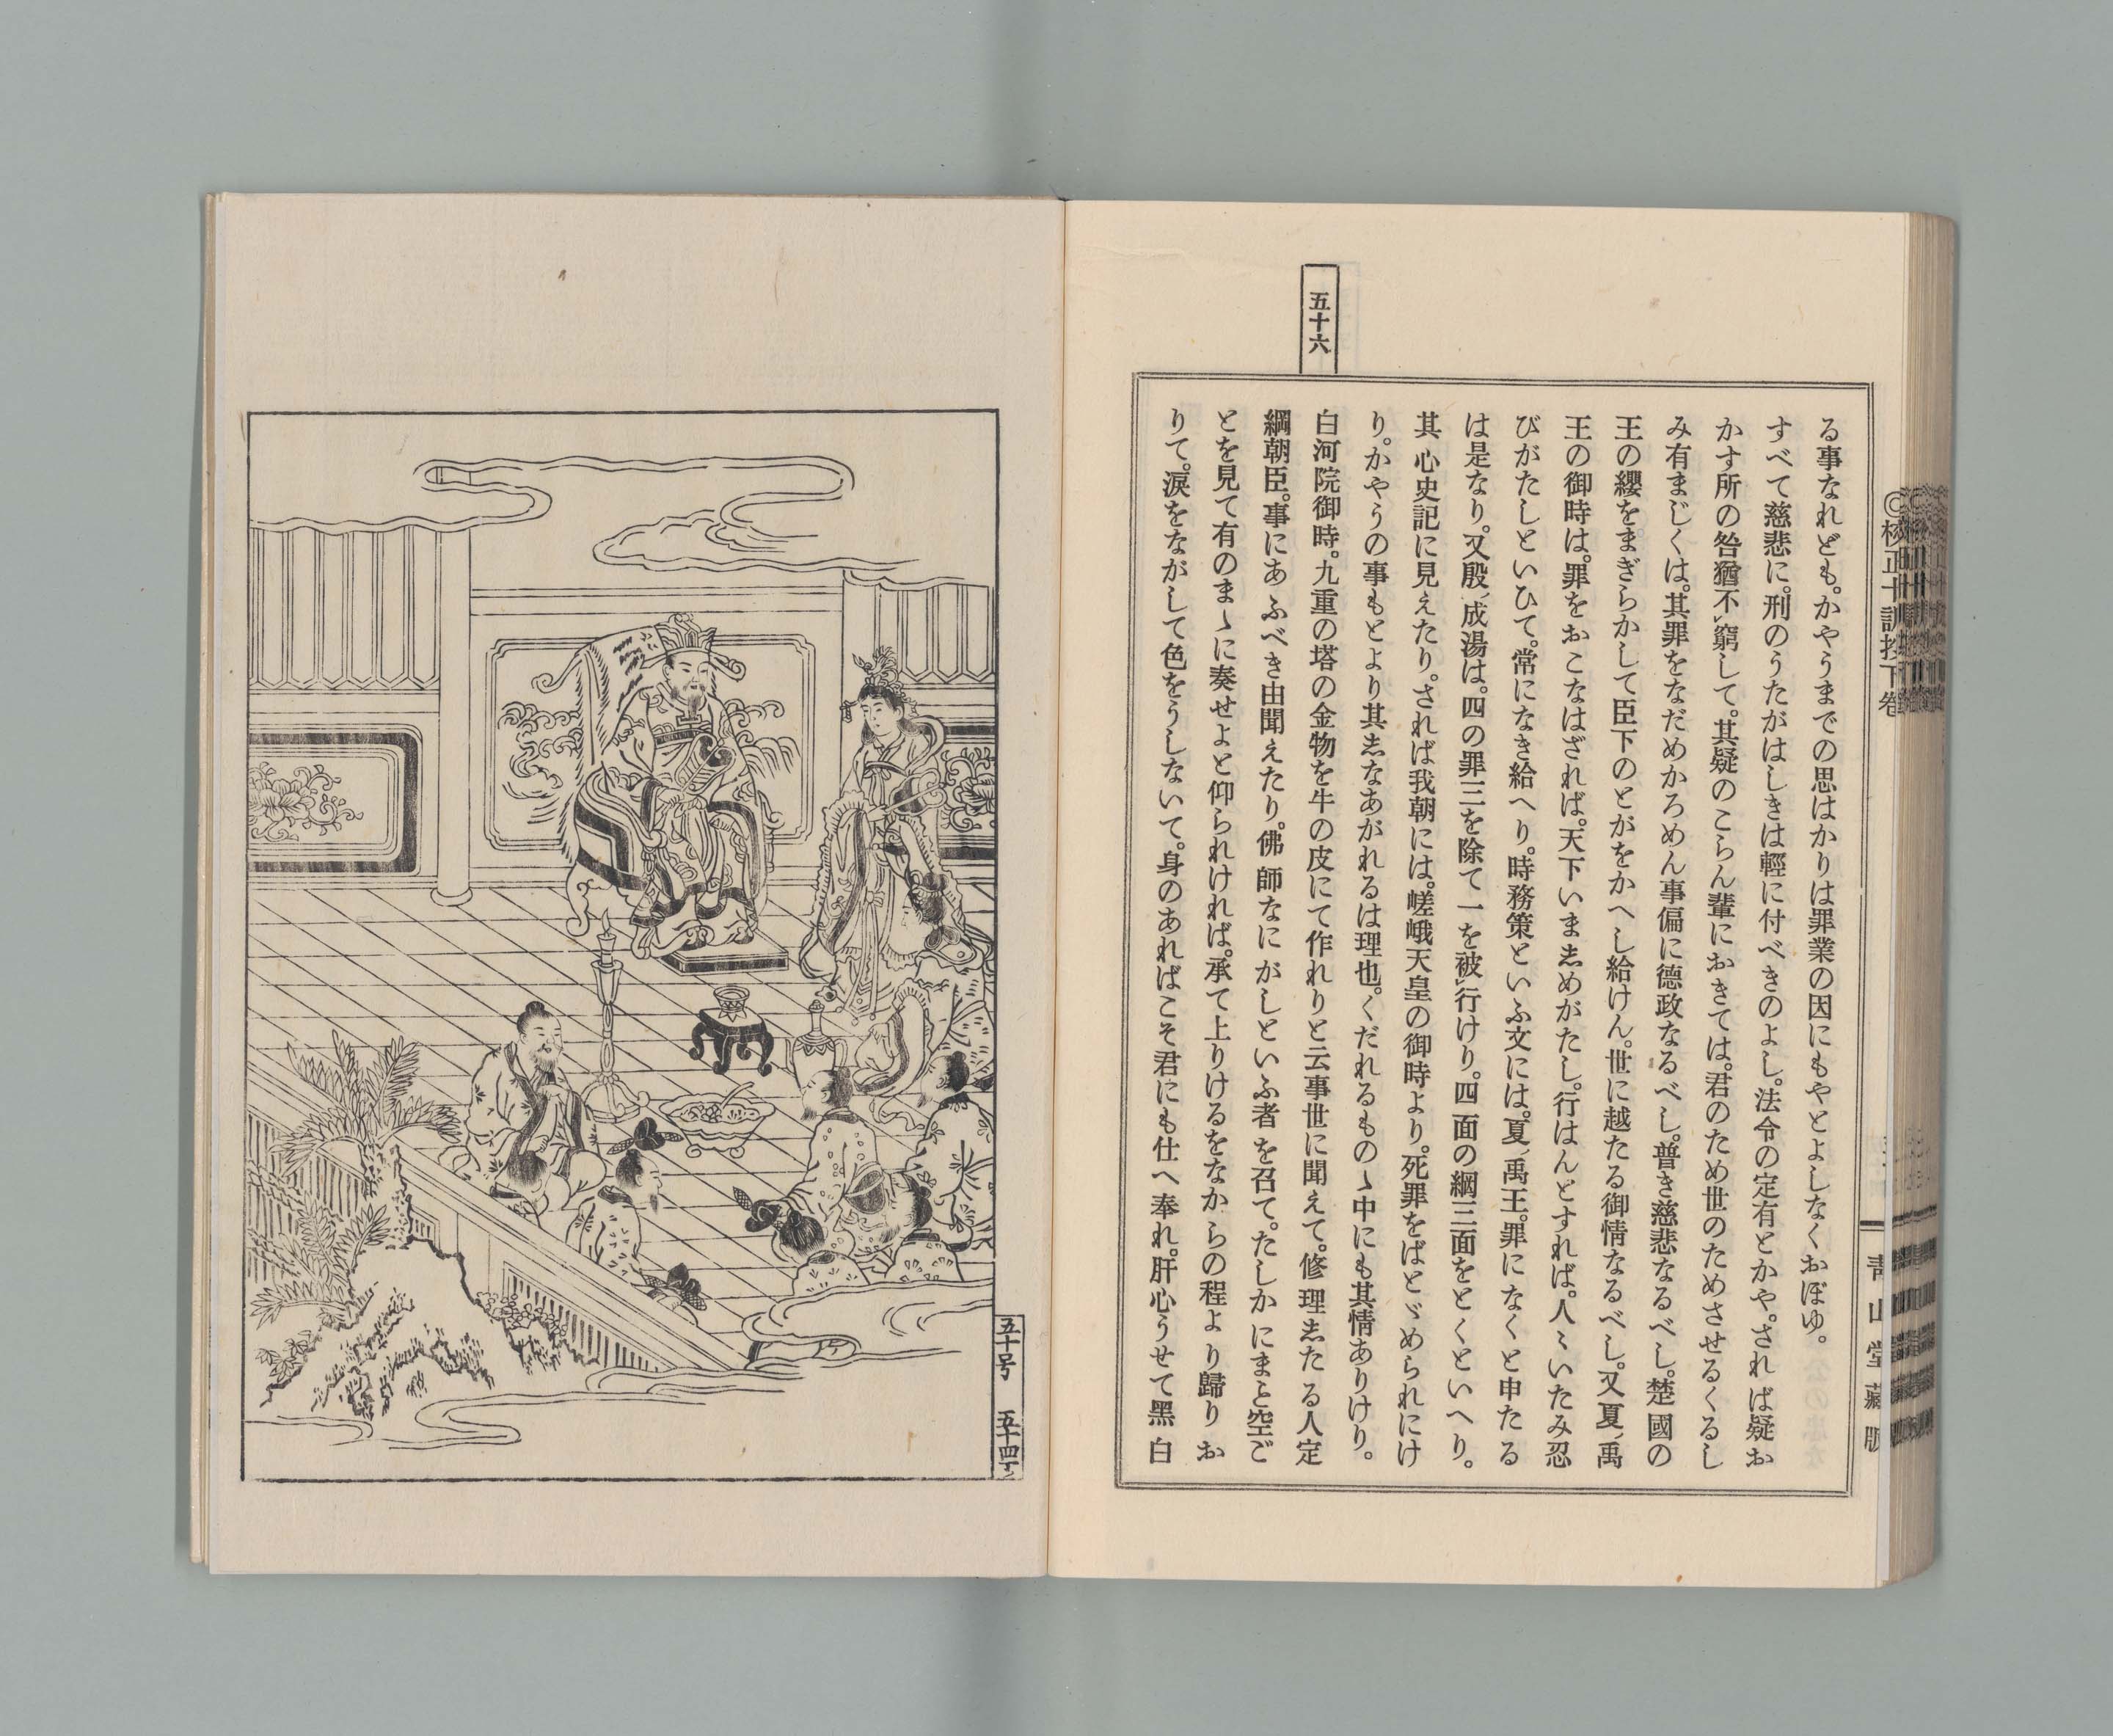 ◎校正十訓抄下卷
靑山堂藏版
る事なれども。かやうまでの思はかりは罪業の因にもやとよしなくおぼゆ。
すべて慈悲に。刑のうたがはしきは輕に付べきのよし。法令の定有とかや。されば疑お
かす所の咎猶不レ窮して。其疑のこらん輩におきては。君のため世のためさせるくるし
み有まじくは。其罪をなだめかろめん事偏に德政なるべし。普き慈悲なるべし。楚國の
王の纓をまぎらかして臣下のとがをかへし給けん。世に越たる御情なるべし。又夏ノ禹
王の御時は。罪をおこなはざれば。天下いま志めがたし。行はんとすれば。人〻いたみ忍
びがたしといひて。常になき給へり。時務策といふ文には。夏ノ禹王。罪になくと申たる
は是なり。又殷ノ成湯は。四の罪三を除て一を被レ行けり。四面の綱三面をとくといへり。
其心史記に見えたり。されば我朝には。嵯峨天皇の御時より。死罪をばとゞめられにけ
り。かやうの事もとより其志なあがれるは理也。くだれるものゝ中にも其情ありけり。
五十六
白河院御時。九重の塔の金物を牛の皮にて作れりと云事世に聞えて。修理志たる人定
綱朝臣。事にあふべき由聞えたり。佛師なにがしといふ者を召て。たしかにまこと空ご
とを見て有のまゝに奏せよと仰られければ。承て上りけるをなからの程より歸りお
りて。涙をながして色をうしないて。身のあればこそ君にも仕へ奉れ。肝心うせて黑白
五十号 五十四丁